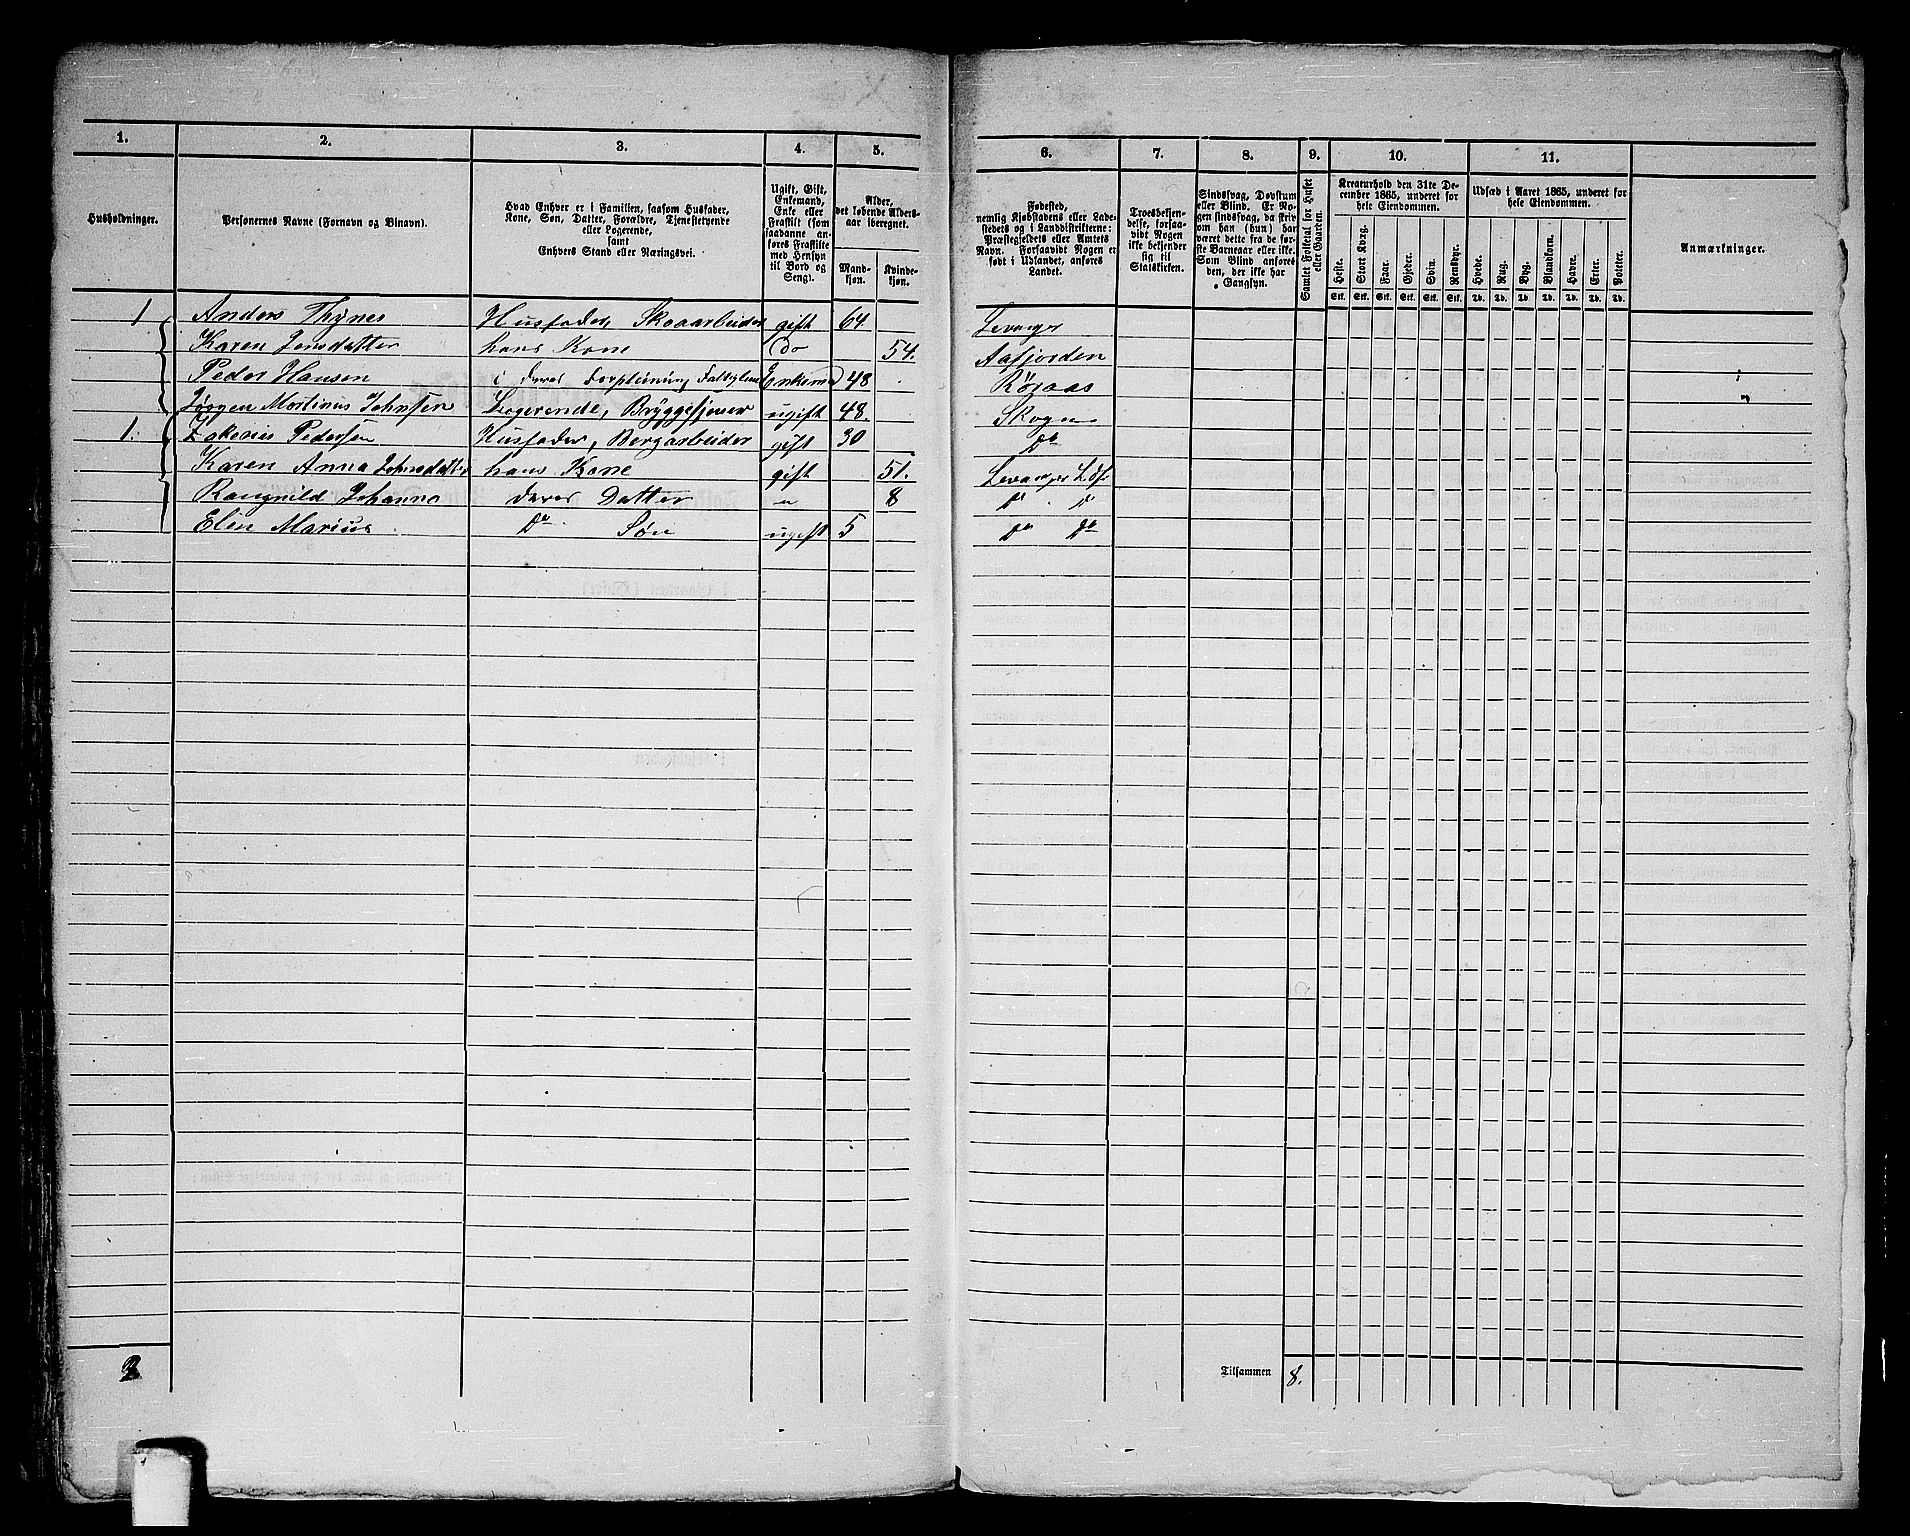 1. 2. 3. 4. 5. 6. 7. 8. 9. 10. 11.
Husholdninger.
Personernes Navne (Fornavn og Binavn).
Hvad Enhver er i Familien, saasom Husfader,
Kone, Søn, Datter, Forældre, Tjenestetyende
eller Logerende,
samt
Enhvers Stand eller Næringsvei.
Ugift, Gift,
Enkemand,
Enke eller
Fraskilt (som
saadanne an-
føres Fraskilte
med Hensyn
til Bord og
Seng).
Alder,
det løbende Alders-
aar iberegnet.
Mand-
kjøn.
Kvinde-
kjøn.
Fødested,
nemlig Kjøbstadens eller Lade-
stedets og i Landdistrikterne:
Præstegjeldets eller Amtets
Navn. Forsaavidt Nogen er
født i Udlandet, anføres
Landet.
Troesbekjen-
delse, forsaa-
vidt Nogen
ikke bekjender
sig til
Statskirken.
Sindssvag, Døvstum
eller Blind. Er No-
gen sindssvag, da skriv
om han (hun) har
været dette fra de før-
ste Barneaar eller ikke.
Som Blind anføres
den, der ikke har
Gangsyn.
Samlet Folketal for Huset
eller Gaarden.
Kreaturhold den 31te De-
cember 1865, underet for
hele Eiendommen.
Heste. Stort Kvæg. Faar. Gjeder. Svin. Rensdyr.
Stk. Stk. Stk. Stk. Stk. Stk.
Udsæd i Aaret 1865, underet for
hele Eiendommen.
Hvede. Rug. Byg. Blandkorn. Havre. Erter. Poteter.
Td. Td. Td. Td. Td. Td. Td.
Anmærkninger.
1 Anders Thynes Husfader, Skoaarbeider gift 64 Levanger
Karen Jonsdatter hans Kone Do 54. Aafjorden
Peder Hansen i deres Enkem 48 Röraas
Jørgen Mortinus Johnsen Logerende, Bryggesjouer ugift 48. Skogn
1. Zakarias Pedersen Husfader, Bergarbeider gift 30 Do
Karen Anna Johnsdatter hans Kone gift 51. Levanger Lds.
Rangnild Johanna deres Datter " 8 D D
Elen Marius Do Søn ugift 5 Do Do
2 Tilsammen 8.